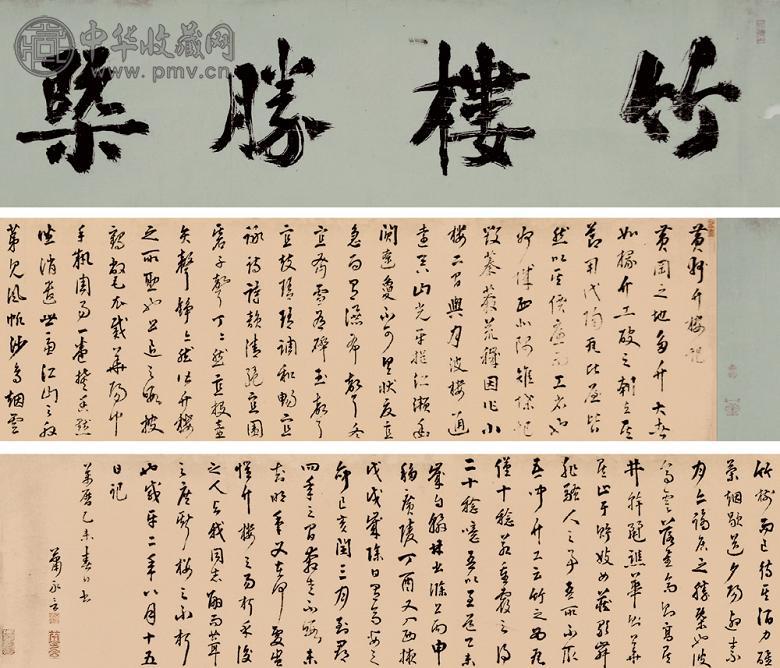 中华收藏网
www.pmv.cn
竹樓勝槩
黄州竹樓記
黄岡之地多竹大者
如椽竹工破之刳去其
節用代陶瓦比屋皆
然以其價廉而工省也
子城西北隅雉堞圮
毀蓁莽荒穢因作小
樓二間與月波樓通
遠吞山光平挹江瀨幽
闃遼夐不可具狀夏宜
急雨有瀑布聲冬
宜密雪有碎玉聲
宜鼓琴琴調和暢宜
詠詩詩韻清絕宜圍
碁子聲丁丁然宜投壺
矢聲錚錚然皆竹樓
之所助也公退之暇披
鶴氅衣戴華陽巾
手執周易一卷焚香默
坐消遣世慮江山之外
第見風帆沙鳥煙雲
竹樹而已待其酒力醒
茶煙歇送夕陽迎素
月亦謫居之勝槩也彼
齊雲落星高則高矣
井幹麗譙華則華
矣止于貯妓女藏歌舞
非騷人之事吾所不取
吾聞竹工云竹之為瓦
僅十稔若重覆之得
二十稔噫吾以至道乙未
歲自翰林出滁上丙申
移廣陵丁酉又入西掖
戊戌歲除日有齊安之
命己亥閏三月到郡
四年之間奔走不暇未
知明年又在何處豈
懼竹樓之易朽乎後
之人與我同志嗣而葺
之庶斯樓之不朽
也咸平二年八月十五
日記
萬曆乙未春日書